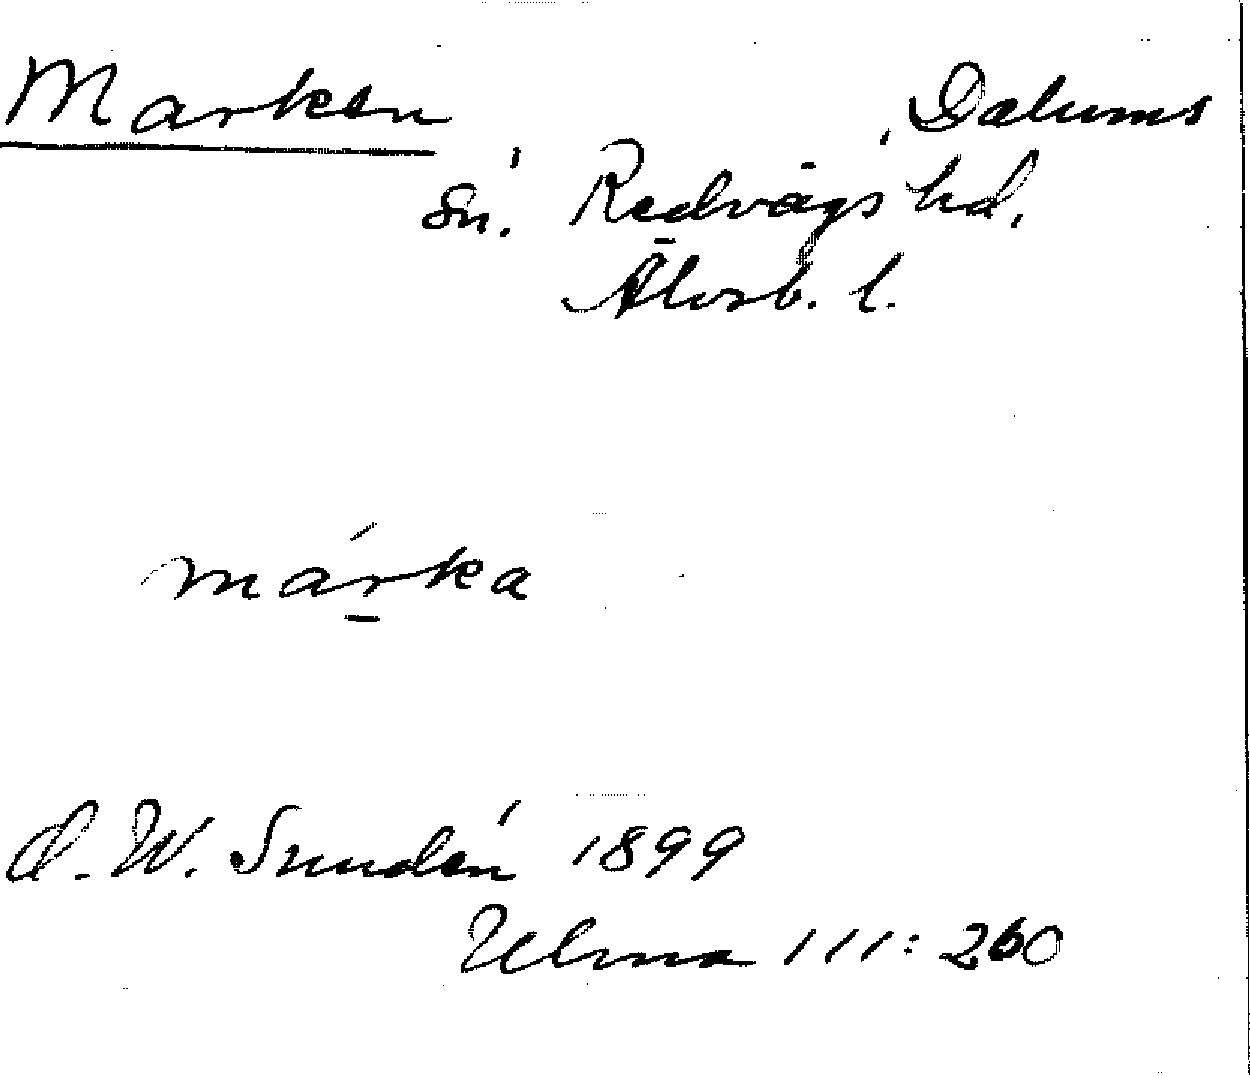 Marken Dalums
sn. Redvägs hd.
Älvsb. l.
márka
D. W. Sundén 1899
Ulma 111:260